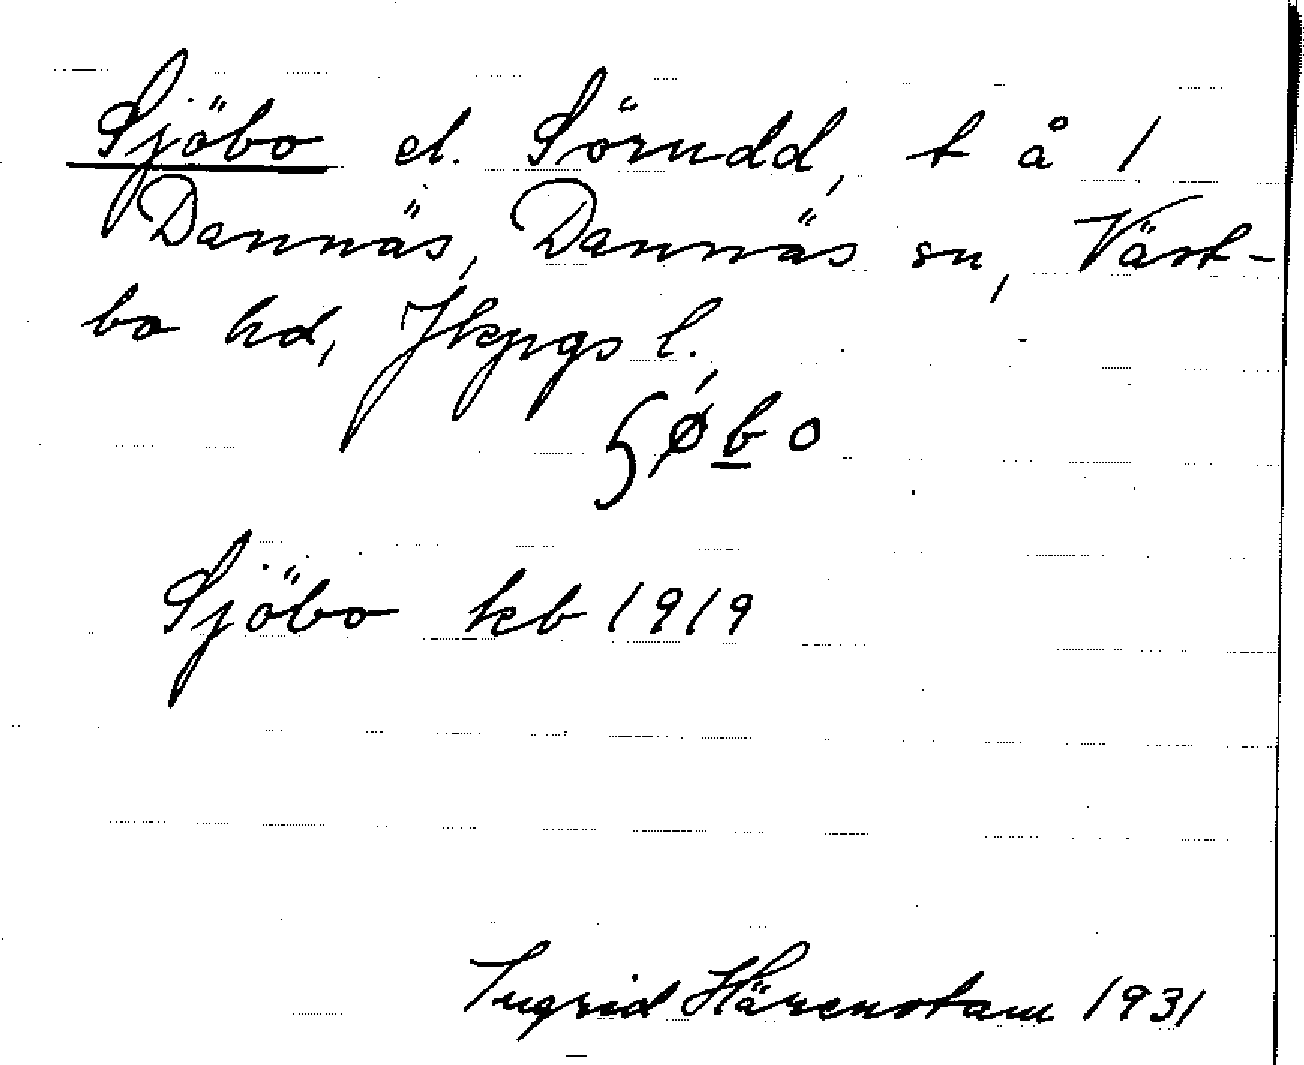 Sjöbo el. Sörudd, t å 1
Dannäs, Dannäs sn, Väst-
bo hd, Jkpgs l.
ʃǿb̲o
Sjöbo kb 1919
Ingrid Härenstam 1931